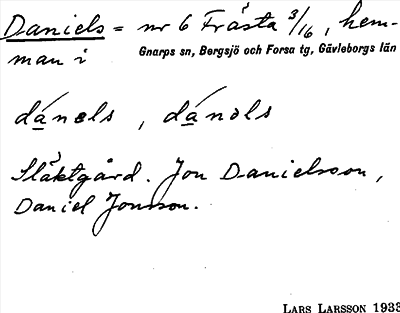 Daniels = nr 6 Frästa 3/16, hem-
man i Gnarps sn, Bergsjö och Forsa tg, Gävleborgs län
dánels, dánəls
Släktgård. Jon Danielsson,
Daniel Jonsson.
LARS LARSSON 1933